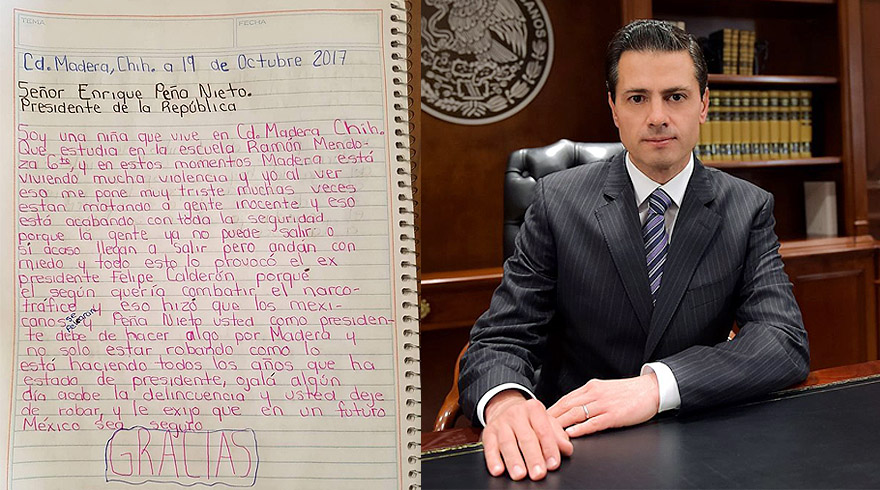 TEMA
FECHA
Cd. Madera, Chih. a 19 de Octubre 2017
Señor Enrique Peña Nieto.
Presidente de la República
Soy una niña que vive en Cd. Madera Chih.
Que estudia en la escuela Ramón Mendo-
za 6to y en estos momentos Madera está
viviendo mucha violencia y yo al ver
eso me pone muy triste muchas veces
estan matando a gente inocente y eso
está acabando con toda la seguridad
porque la gente ya no puede salir o
si acaso llegan a salir pero andán con
miedo y todo esto lo provocó el ex
presidente Felipe Calderón porqué
el según quería combatir el narco-
tráfico y eso hizó que los mexi-
canos se pelearan y Peña Nieto usted como presiden-
te debe de hacer algo por Madera y
no solo estar robando como lo
está haciendo todos los años que ha
estado de presidente, ojalá algún
día acabe la delincuencia y usted deje
de robar, y le exijo que en un futuro
México sea seguro
GRACIAS